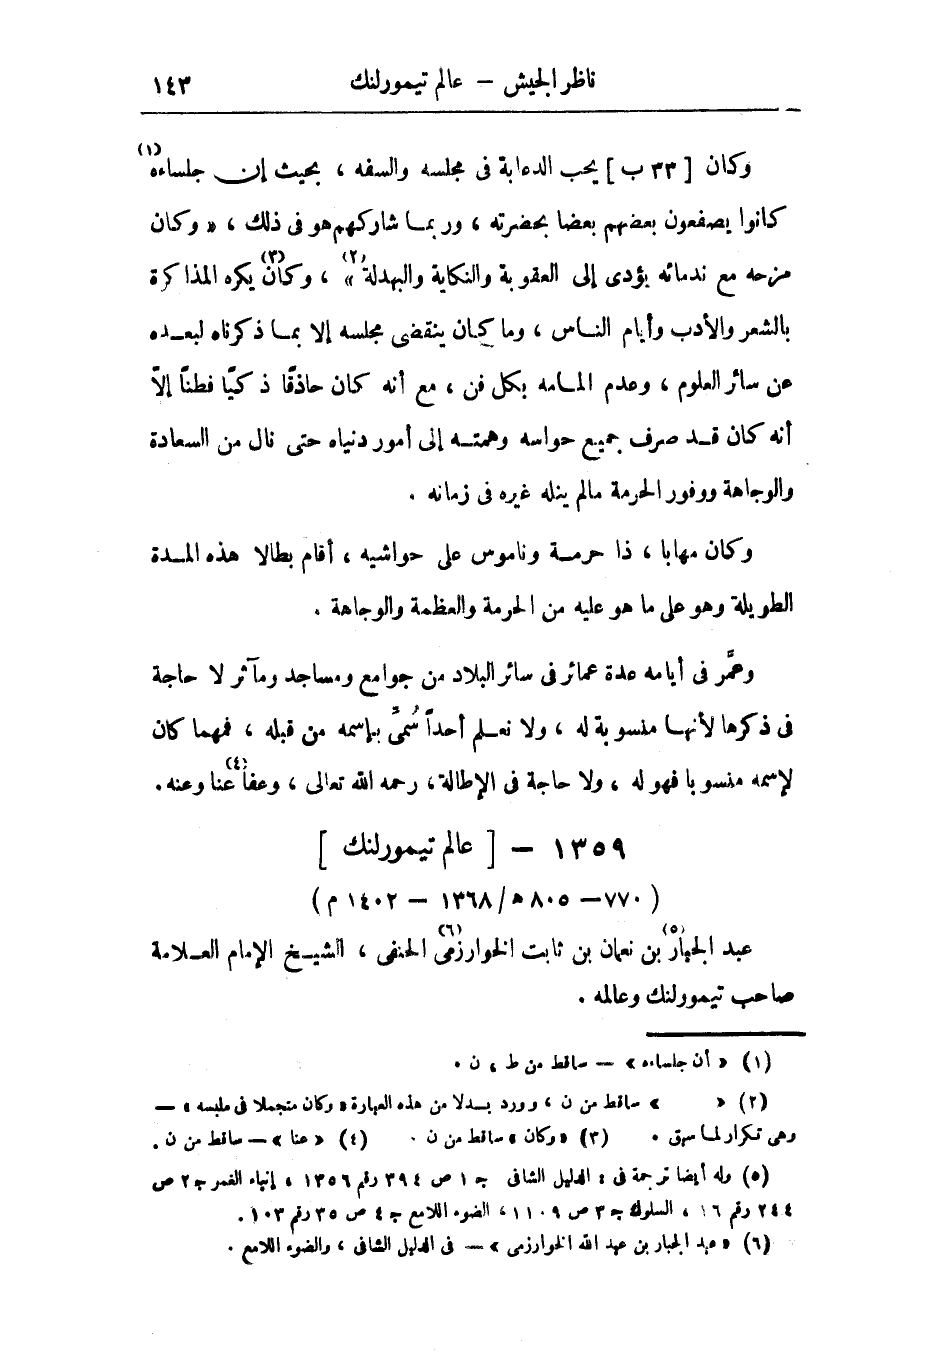 ناظر الجيش – عالم تيمورلنك ١٤٣
وكان [ ٣٣ ب ] يحب الدعابة فى مجلسه والسفه ، بحيث إن جلساءه (١)
كانوا يصفعون بعضهم بعضا بحضرته ، وربمـا شاركهم هو فى ذلك ، « وكان
مزحه مع ندمائه يؤدى إلى العقوبة والنكاية والبهدلة (٢) » ، وكان (٣) يكره المذاكرة
بالشعر والأدب وأيام النـاس ، وما كـان ينقضى مجلسه إلا بمـا ذكرناه لبعـده
عن سائر العلوم ، وعدم المـامه بكل فن ، مع أنه كان حاذقًا ذكيًّا فطنًا إلاّ
أنه كان قـد صرف جميع حواسه وهمتـه إلى أمور دنياه حتى نال من السعادة
والوجاهة ووفور الحرمة مالم ينله غيره فى زمانه .
وكان مهابا ، ذا حرمـة وناموس على حواشيه ، أقام بطالا هذه المـدة
الطويلة وهو على ما هو عليه من الحرمة والعظمة والوجاهة .
وعمَّر فى أيامه عدة عمائر فى سائر البلاد من جوامع ومساجد ومآثر لا حاجة
فى ذكرها لأنهـا منسوبة له ، ولا نعـلم أحداً سُمىِّ بإسمه من قبله ، فمهما كان
لإسمه منسوبا فهو له ، ولا حاجة فى الإطالة ، رحمه الله تعالى ، وعفا عنا (٤) وعنه .
١٣٥٩ – [ عالم تيمورلنك ]
( ٧٧٠ – ٨٠٥ هـ / ١٣٦٨ – ١٤٠٢ م )
عبد الجبار (٥) بن نعمان بن ثابت الخوارزمى (٦) الحنفى ، الشيـخ الإمام العـلامة
صاحب تيمورلنك وعالمه .
(١) « أن جلساءه » – ساقط من ط ، ن .
(٢) « » ساقط من ن ، وورد بـدلا من هذه العبارة « وكان متجملا فى ملبسه » –
وهى تكرار لما سبق . (٣) « وكان » ساقط من ن . (٤) « عنا » – ساقط من ن .
(٥) وله أيضا ترجمة فى : الدليل الشافى جـ ١ ص ٣٩٤ رقم ١٣٥٦ ، إنباء الغمر جـ ٢ ص
٢٤٤ رقم ١٦ ، السلوك جـ ٣ ص ١١٠٩ ، الضوء اللامع جـ ٤ ص ٣٥ رقم ١٠٣ .
(٦) « عبد الجبار بن عبد الله الخوارزمى » – فى الدليل الشافى ، والضوء اللامع .